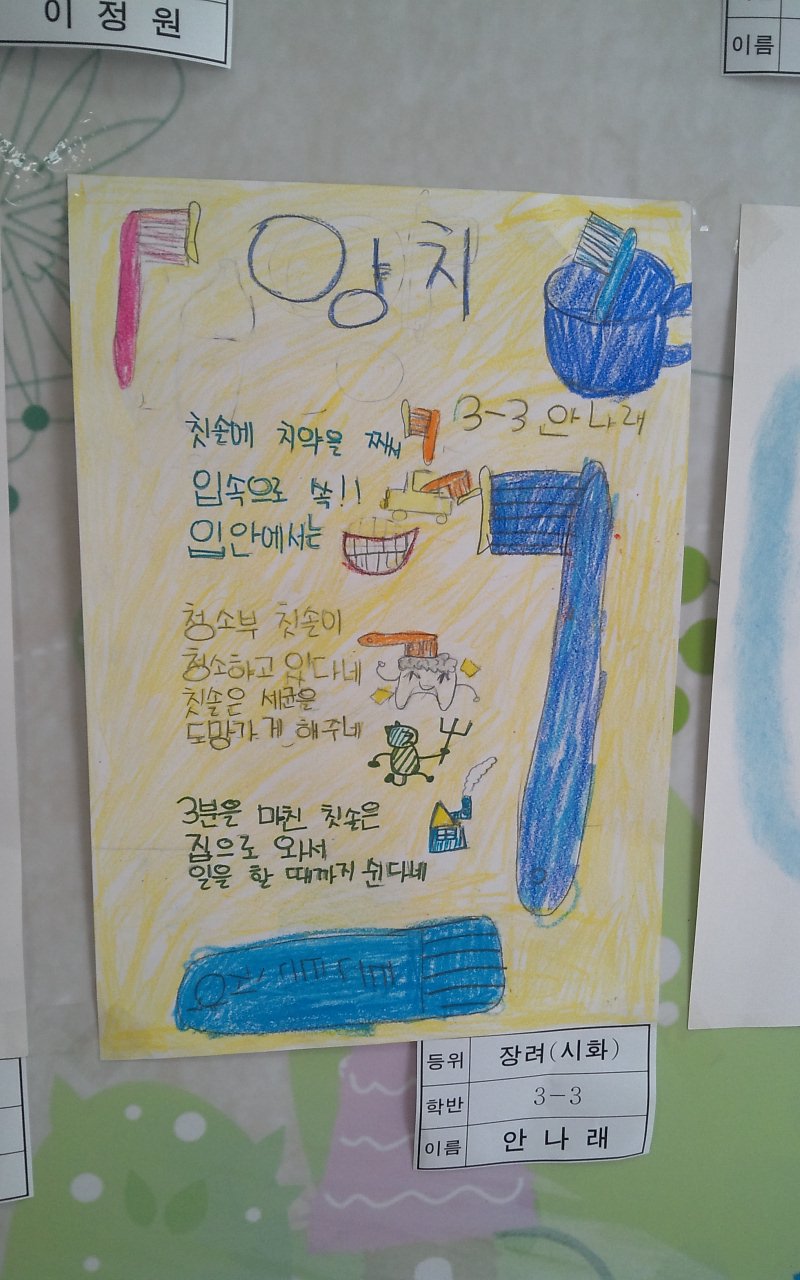 이 정 원
이름
양치
3-3 안나래
칫솔에 치약을 짜서
입속으로 쏙!!
입안에서는
청소부 칫솔이
청소하고 있다네
칫솔은 세균을
도망가게 해주네
3분을 마친 칫솔은
집으로 와서
일을 할 때까지 쉰다네
등위 장려(시화)
학반 3-3
이름 안 나 래